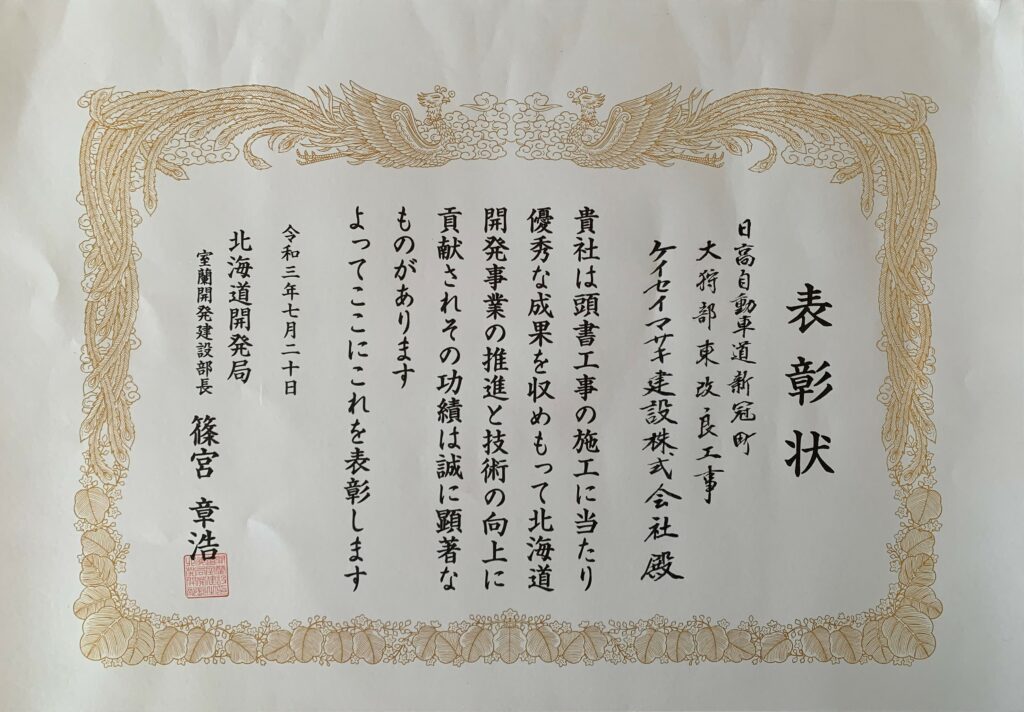 表彰状
日高自動車道新冠町
大狩部東改良工事
ケイセイマサキ建設株式会社殿
貴社は頭書工事の施工に当たり
優秀な成果を収めもって北海道
開発事業の推進と技術の向上に
貢献されその功績は誠に顕著な
ものがあります
よってここにこれを表彰します
令和三年七月二十日
北海道開発局
室蘭開発建設部長
篠宮章浩